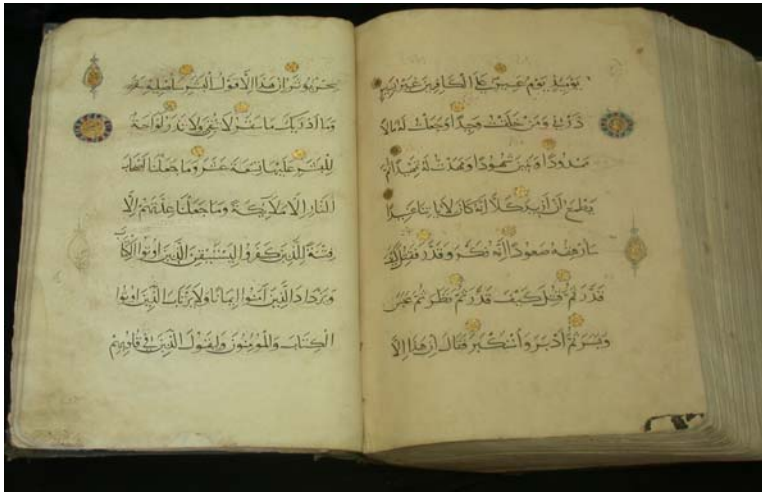 يومئذ يوم عسير على الكافرين غير يسير
ذرني ومن خلقت وحيدا وجعلت له مالا
ممدودا وبنين شهودا ومهدت له تمهيدا ثم
يطمع ان ازيد كلا انه كان لاياتنا عنيدا
سارهقه صعودا انه فكر وقدر فقتل كيف
قدر ثم قتل كيف قدر ثم نظر ثم عبس
وبسر ثم ادبر واستكبر فقال ان هذا الا
سحر يؤثر ان هذا الا قول البشر ساصليه سقر
وما ادريك ما سقر لا تبقي ولا تذر لواحة
للبشر عليها تسعة عشر وما جعلنا اصحاب
النار الا ملائكة وما جعلنا عدتهم الا
فتنة للذين كفروا ليستيقن الذين اوتوا الكتاب
ويزداد الذين امنوا ايمانا ولا يرتاب الذين اوتوا
الكتاب والمؤمنون وليقول الذين في قلوبهم